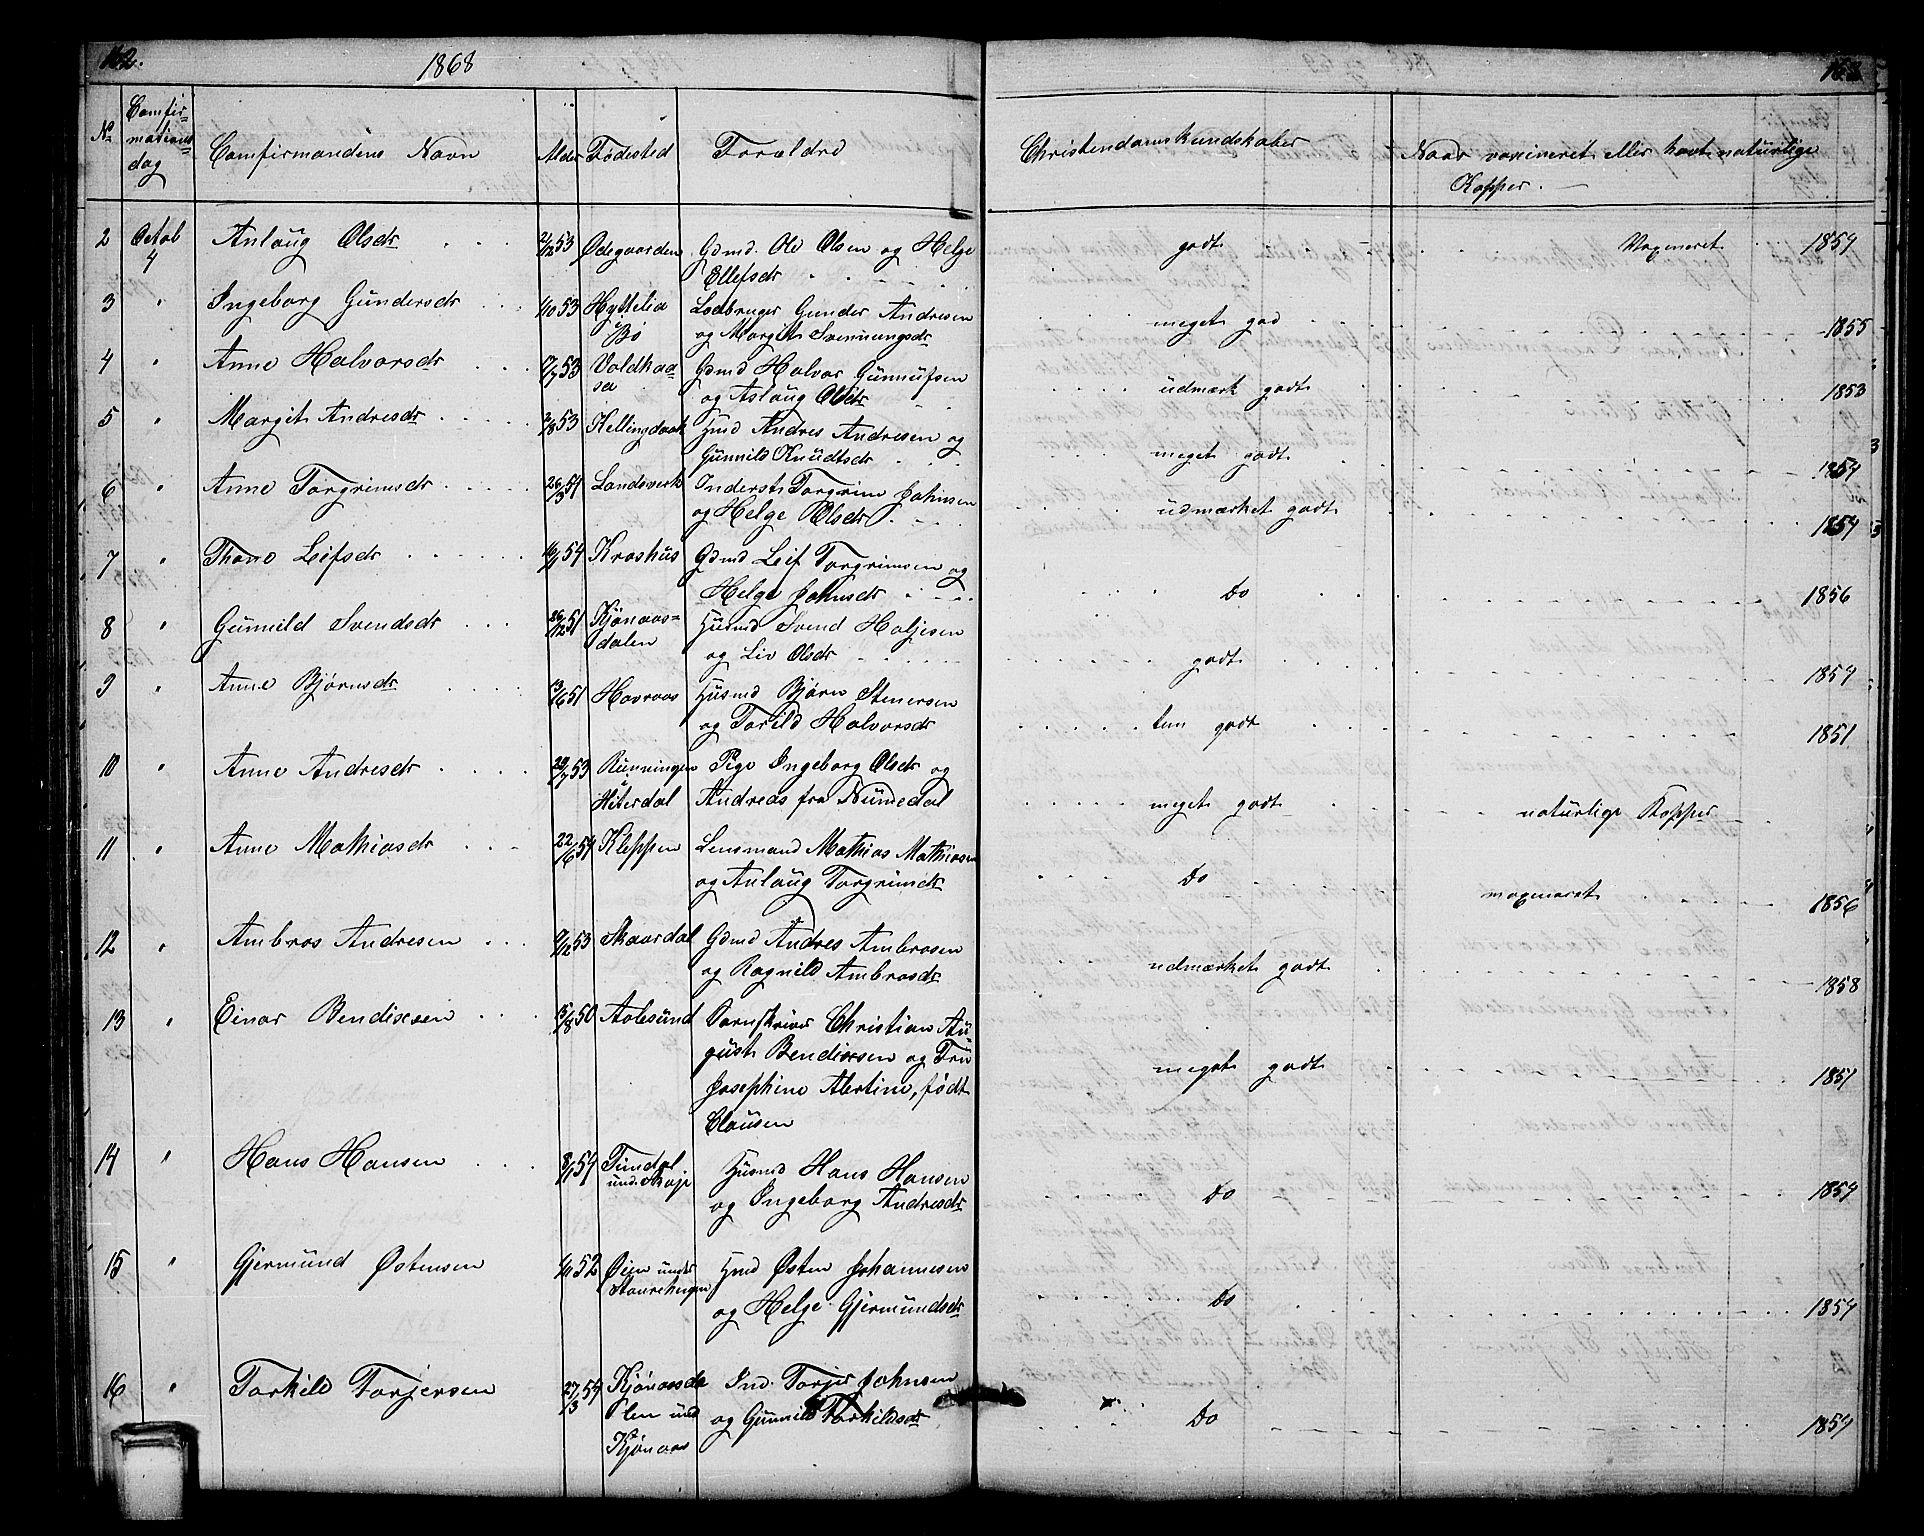 162.
1868
163
No
Comfir-
mations
dag
Comfirmandens Navn
Alder
Födested
Forældre
Christendomskundskaber
Naar vaxineret eller havt naturlige
Kopper.
2 Octob 4 Anlaug Olsdr 2/12 53 Ødegaarden Gdmd. Ole Olsen og Helge
Ellefsdr godt Vaxineret 1854
3 " Ingeborg Gundersdr 1/10 53 Hyttelia Lodbruger Gunder Andresen
Bø og Margit Svennungsdr meget god 1855
4 " Anne Halvorsdr 53 Voldhaa- Gdmd Halvor Gunnufsen
sea og Aslaug Olsdr udmærk godt 1853
5 " Margit Andresdr 53 Hellingdaak Hmd Andres Andresen og
Gunnild Knudtsdr meget godt 1854
6 " Anne Torgrimsdr 26/3 54 Landsverk Inderst Torgrim Johnsen
og Helge Olsdr udmærket godt 1854
7 " Thone Leifsdr 54 Kroshus Gdmd Leif Torgrimsen og
Helge Johnsdr Do 1856
8 " Gunnild Svendsdr 26/12 51 Kjønaas= Husmd Svend Holjesen
dalen og Liv Olsdr godt 1854
9 " Anne Bjørnsdr 13/6 51 Havraas Husmd Bjørn Stenersen
og Torild Halvorsdr tem godt 1851
10 " Anne Andresdr 53 Rünningen Pige Ingeborg Olsdr og
i Hiterdal Andreas fra Numedal meget godt naturlige Kopper
11 " Anne Mathiasdr 22/6 54 Kleppen Lensmand Mathias Mathiasen
og Anlaug Torgrimsdr Do vaxineret 1856
12 " Ambros Andresen 9/12 53 Skaardal Gdmd Andres Ambrosen
og Ragnild Ambrosdr udmærket godt 1858
13 " Einar Bendixsen 15/8 50 Aalesund Christian Au-
gust Bendixsen og Fru
Josephine Albertine, født
Clausen meget godt 1851
14 " Hans Hansen 54 Tindal Husmd Hans Hansen
und. og Ingeborg Andresdr Do 1854
15 " Gjermund Østensen 52 Øien under Hmd Østen Johannesen
og Helge Gjermundsdr Do 1854
16 " Torkild Torjersen 27/3 54 Kjønaasda Ind. Torjer Johnsen
len und og Gunnild Torkildsdr Do 1854
Kjønaas